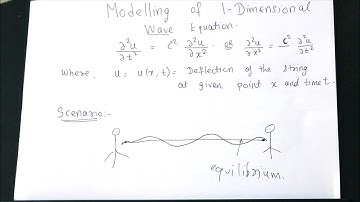 Modelling of 1-Dimensional
Wave Equation.
∂²u/∂t² = c² ∂²u/∂x² or ∂²u/∂x² = c² ∂²u/∂t²
where, u = u(x,t) = Deflection of the string
at given point x and time t.
Scenario:-
equilibrium.